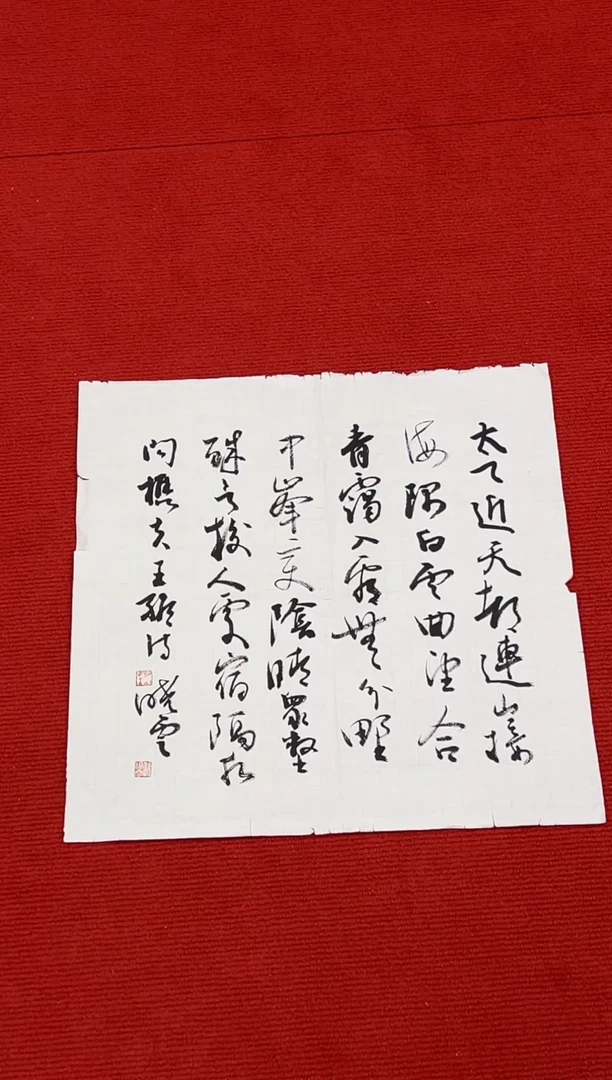 太乙近天都連山接
海隅白雲回望合
青靄入看無分野
中峯變陰晴眾壑
殊欲投人處宿隔水
問樵夫王維詩 曉雲